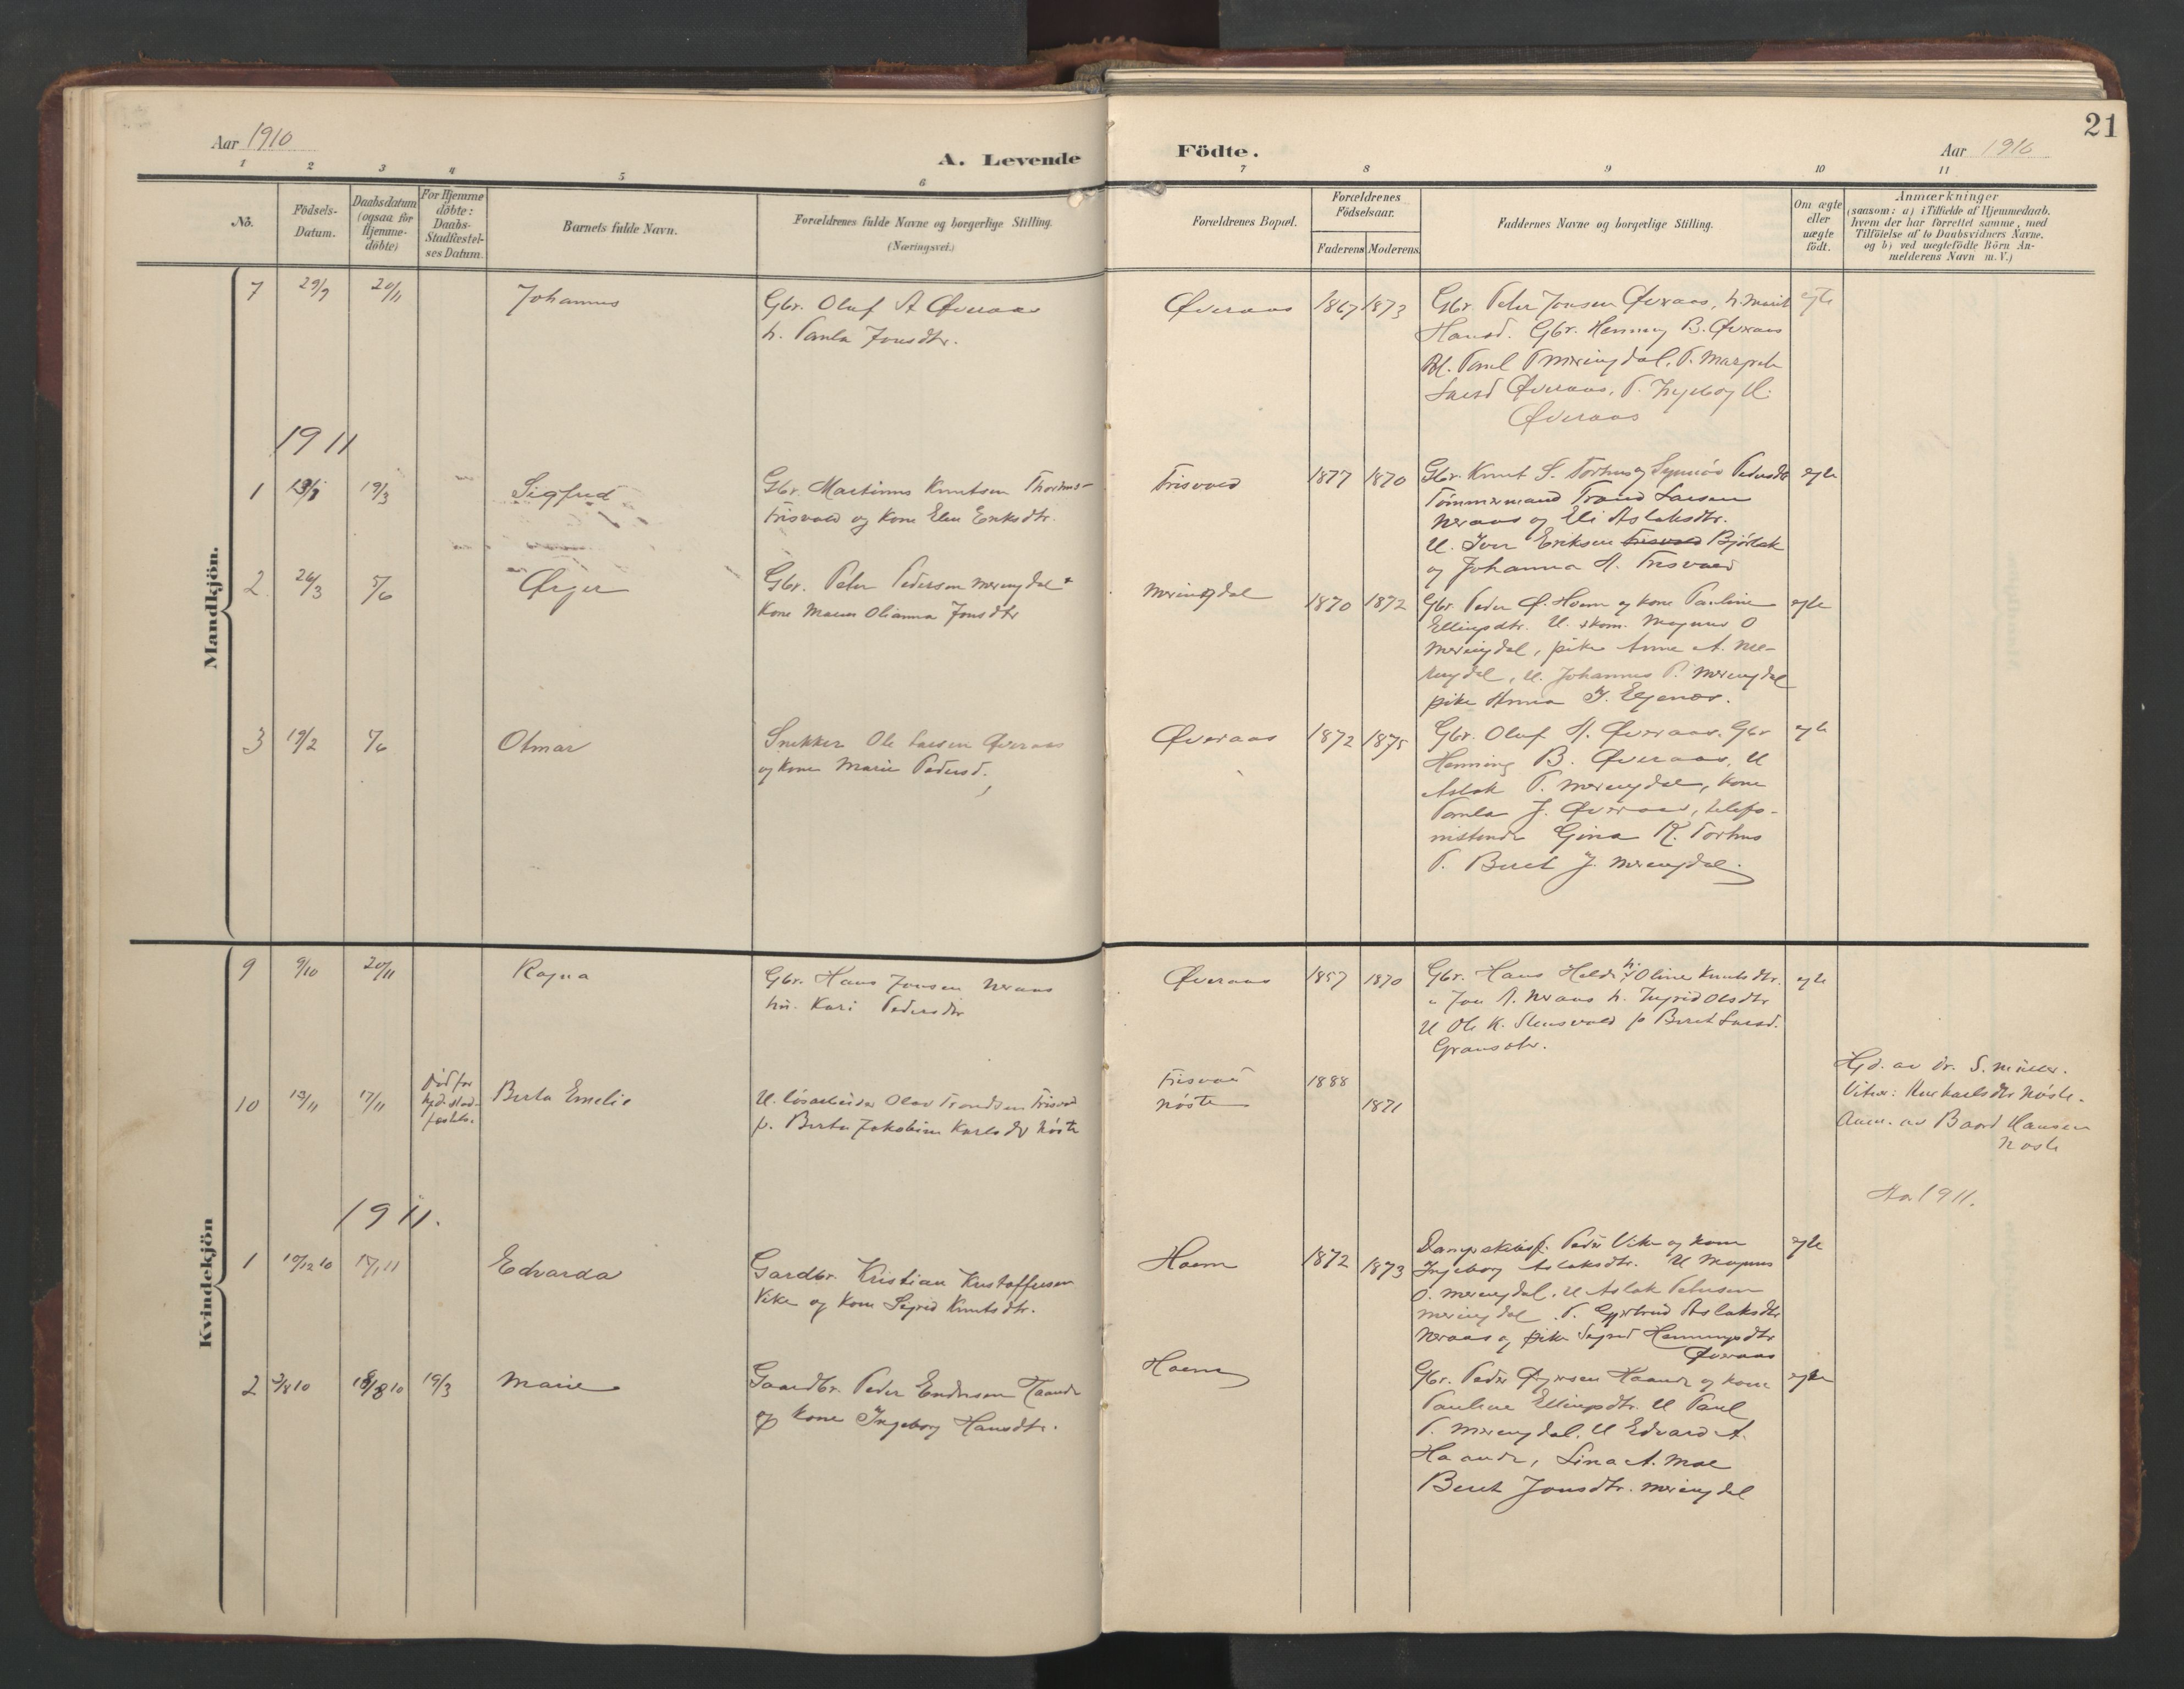 21
Aar 1910
A. Levende
Födte.
Aar 1910
1 2 3 4 5 6 7 8 9 10 11
No.
Födsels-
Datum.
Daabsdatum
(ogsaa för
Hjemme-
döbte)
For Hjemme
döbte:
Daabs-
Stadfæstel-
ses Datum.
Barnets fulde Navn.
Forældrenes fulde Navne og borgerlige Stilling.
(Næringsvei.)
Forældrenes Bopæl.
Forældrenes
Födselsaar.
Faderens Moderens
Faddernes Navne og borgerlige Stilling.
Om ægte
eller
uægte
födt.
Anmærkninger
(saasom: a) i Tilfælde af Hjemmedaab.
hvem der har forrettet samme, med
Tilföielse af to Daabsvidners Navne.
og b) ved uægtefödte Börn An-
melderens Navn m. V.)
Mandkjön.
7 29/9 20/11 Johannes
Gbr. Oluf A Øveraas
h. Paula Jonsdtr.
Øveraas 1867 1873
Gbr. Peter Jonsen Øveraas, h. Marit
Hansd. Gbr. Henning B. Øveraas
Paul P Meringdal, P.
Larsd Øveraas, P. Ingeborg
Øveraas
egte
1911
1 19/3 Sigfred
Gbr. Martinus Knutsen Thorhus-
Trisvold og Kone Elen Eriksdtr.
Trisvold 1877 1870
Gbr. Knut S. Torhus og Synnöv Pedersdtr
Tömmermand Trond Larsen
Neraas og Eli Aslaksdtr.
U. Iver Eriksen Trisvold Bjørbak
og Johanna A. Trisvold
egte
2 26/3 5/6 Ørger
Gbr. Peter Pedersen Meringdal
Kone Maren Olianna Jonsdtr
Meringdal 1870 1872
Gbr. Peder Ø. Hoem og Kone Pauline
Ellingsdtr. U. skom. Magnus O
Meringdal, pike Anne A. Me-
ringdal, U. Johannes P. Meringdal
pike Anna J. Elgenæs.
egte
3 19/2 5/6 Otmar
Snekker Ole Larsen Øveraas
og Kone Marie Pedersd.
Øveraas 1872 1875
Gbr. Oluf A. Øveraas. Gbr
Henning B. Øveraas, U
Aslak P. Meringdal, Kone
Paula J. Øveraas, telefo-
nistinde Gina K. Torhus
P. Beret J. Meringdal.
egte
Kvindekjön
9 9/10 20/11 Ragna
Gbr. Hans Jonsen Neraas
h. Kari Pedersdtr
Øveraas 1857 1870
Gbr. Hans h. Oline Knutsdtr.
" Jon A. Neraas h. Ingrid Olsdtr
U Ole K. Stensvold p Beret Larsd.
egte
10 13/11 17/11 Død før
stad-
fæstels.
Berta Emelie
U. løsarbeider Olav Trondsen Trisvold
p. Berta Jakobine Karlsdtr Nöste
Trisvold 1888
Nöste 1871
Hjd. av dr. S. Müller.
Vitner: Karlsdtr Nöste.
Anm. av Baard Hansen
Nöste
1911.
Aar 1911.
1 10/12 10 15/1 11 Edvarda
Gardbr. Kristian Kristoffersen
Vike og Kone Sigrid Knutsdtr.
Hoem 1872 1873
Dampskibsf. Peder Vike og Kone
Ingeborg Aslaksdtr. U Magnus
O. Meringdal. U Aslak Petersen
Meringdal. P. Gjertrud Aslaksdtr
Neraas og pike Sigrid Henningsdtr
Øveraas
egte
2 10 18/8 10 19/3 Marie
Gaardbr. Peder Endresen Haande
og Kone Ingeborg Hansdtr.
Hoem
Gbr. Peder Ørjersen Haande og Kone
Pauline Ellingsdtr. U Paul
P. Meringdal. U Edvard A.
Haande, Lina A. Moe
Beret Jonsdtr. Meringdal
egte